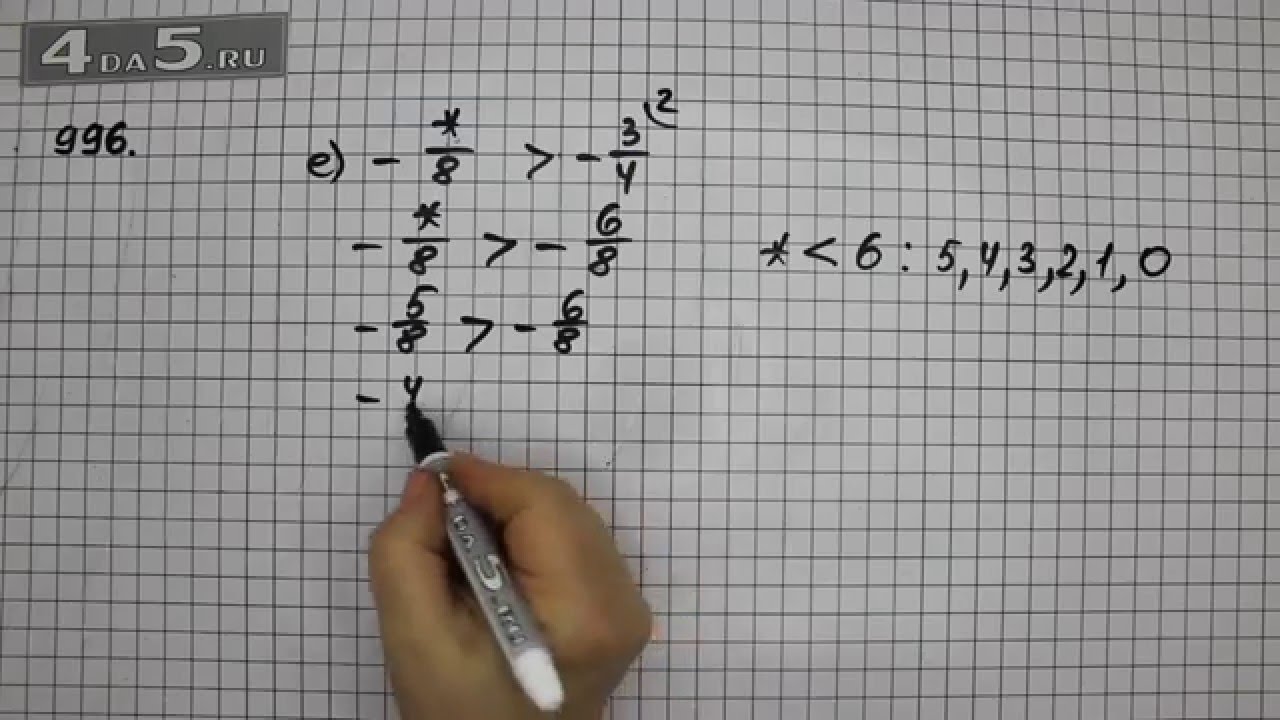 4DA5.RU
996.
е) - */8 > - 3/4 (2
- */8 > - 6/8
* < 6 : 5, 4, 3, 2, 1, 0
- 5/8 > - 6/8
- 4